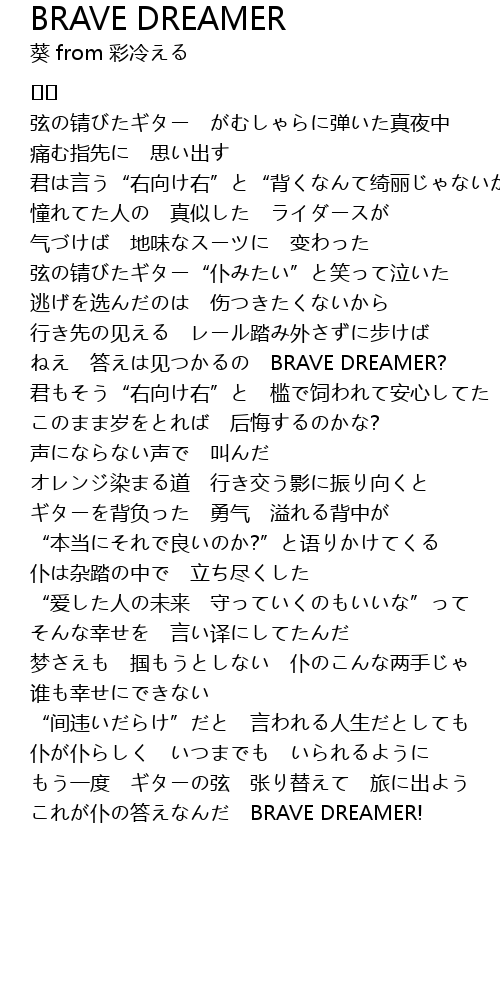 BRAVE DREAMER
葵 from 彩冷える
弦の锖びたギター　がむしゃらに弹いた真夜中
痛む指先に　思い出す
君は言う“右向け右”と“背くなんて绮丽じゃないか
憧れてた人の　真似した　ライダースが
気づけば　地味なスーツに　变わった
弦の锖びたギター“仆みたい”と笑って泣いた
逃げを选んだのは　伤つきたくないから
行き先の见える　レール踏み外さずに步けば
ねえ　答えは见つかるの　BRAVE DREAMER?
君もそう“右向け右”と　槛で饲われて安心してた
このまま岁をとれば　后悔するのかな?
声にならない声で　叫んだ
オレンジ染まる道　行き交う影に振り向くと
ギターを背负った　勇气　溢れる背中が
“本当にそれで良いのか?”と语りかけてくる
仆は杂踏の中で　立ち尽くした
“爱した人の未来　守っていくのもいいな”って
そんな幸せを　言い译にしてたんだ
梦さえも　掴もうとしない　仆のこんな两手じゃ
谁も幸せにできない
“间违いだらけ”だと　言われる人生だとしても
仆が仆らしく　いつまでも　いられるように
もう一度　ギターの弦　张り替えて　旅に出よう
これが仆の答えなんだ　BRAVE DREAMER!